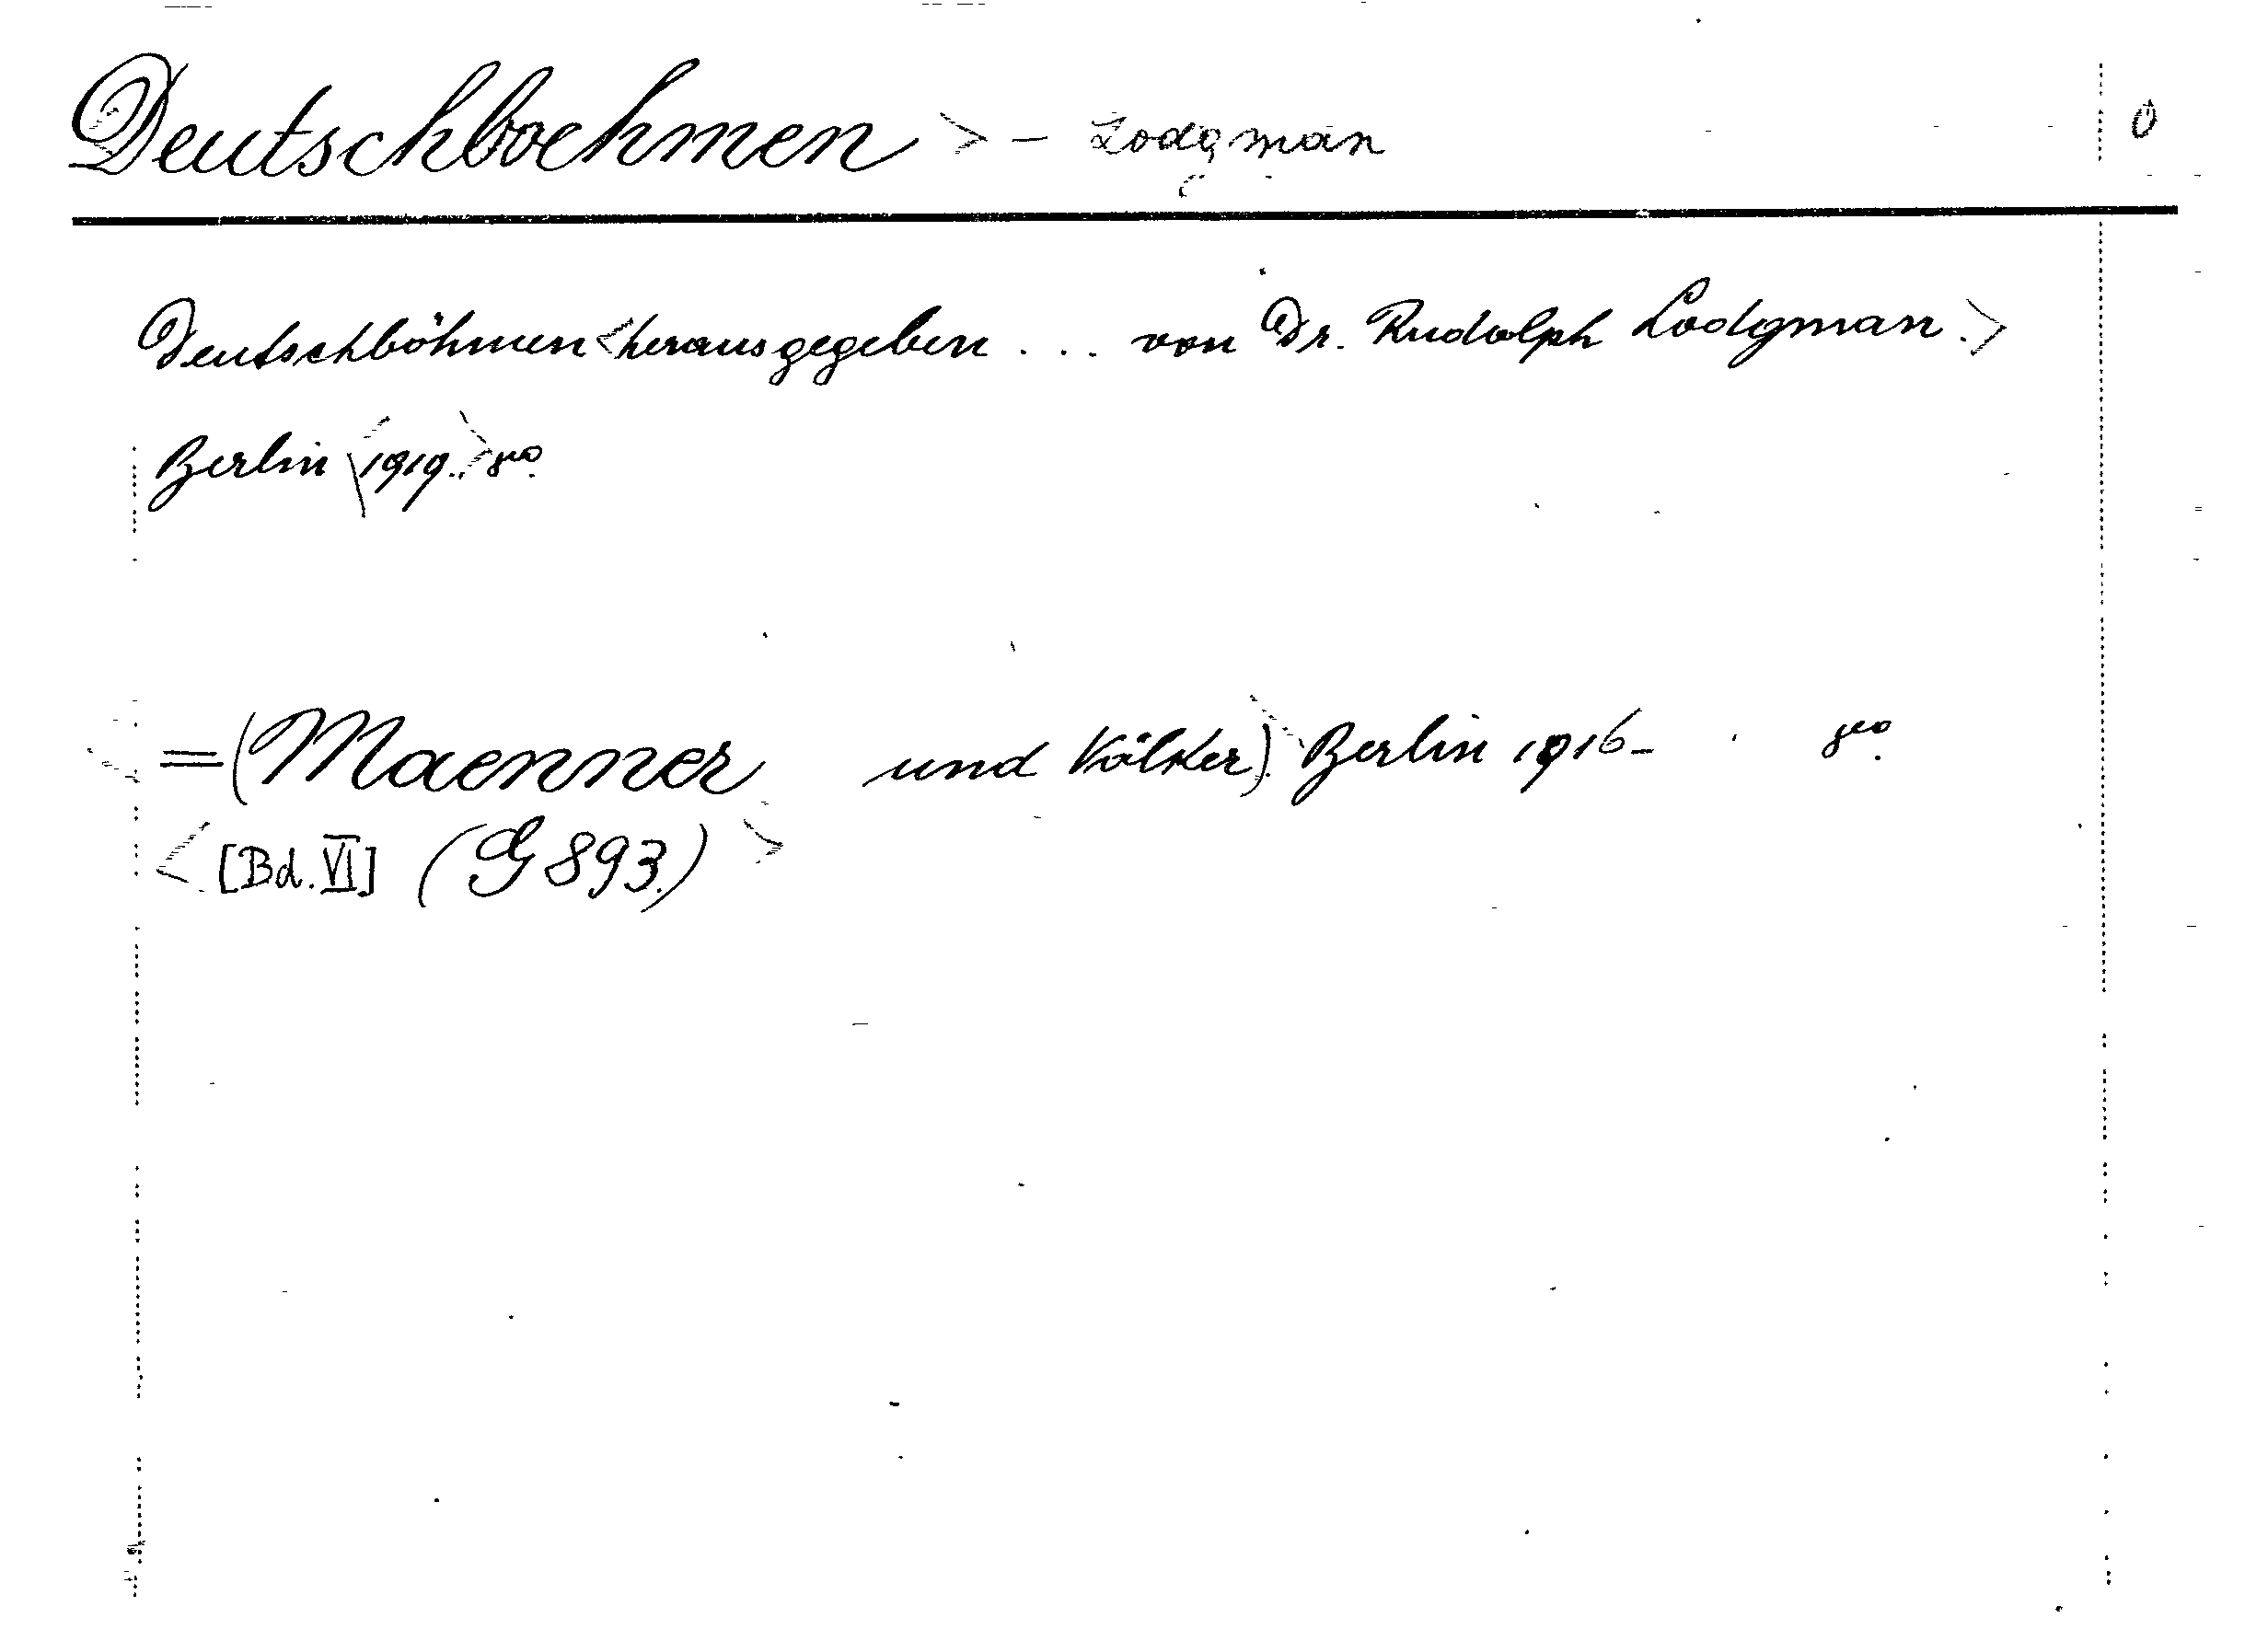 Deutschboehmen > - Lodgman Ö
Deutschböhmen <herausgegeben ... von Dr. Rudolph Lodgman.>
Berlin <1919.> 8vo.
=(Maenner und Völker). Berlin 1916- 8vo.
<[Bd. VI] (G 893.)>